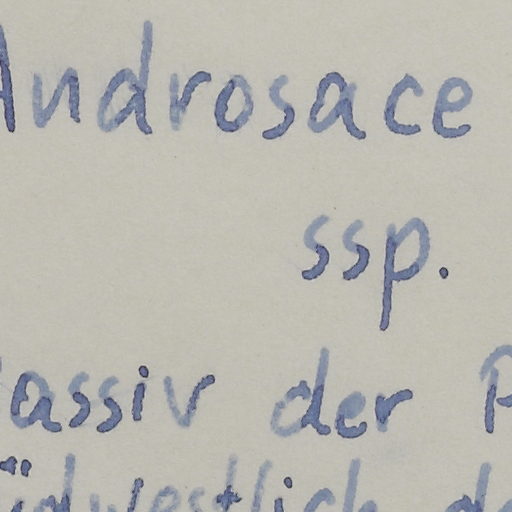 Androsace
ssp.
assiv der P
üdwestlich de